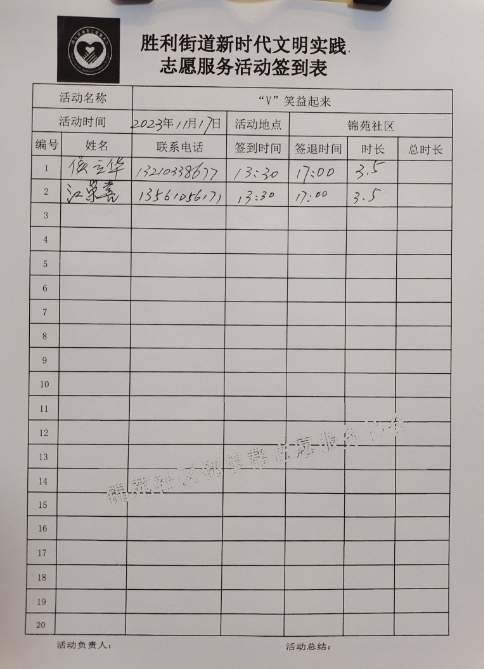 胜利街道新时代文明实践
志愿服务活动签到表
活动名称 “V”笑益起来
活动时间 2023年11月17日 活动地点 锦苑社区
编号 姓名 联系电话 签到时间 签退时间 时长 总时长
1 侯立华 13210338677 13:30 17:00 3.5
2 江荣喜 13561056171 13:30 17:00 3.5
3
4
5
6
7
8
9
10
11
12
13
14
15
16
17
18
19
20
活动负责人: 活动总结: